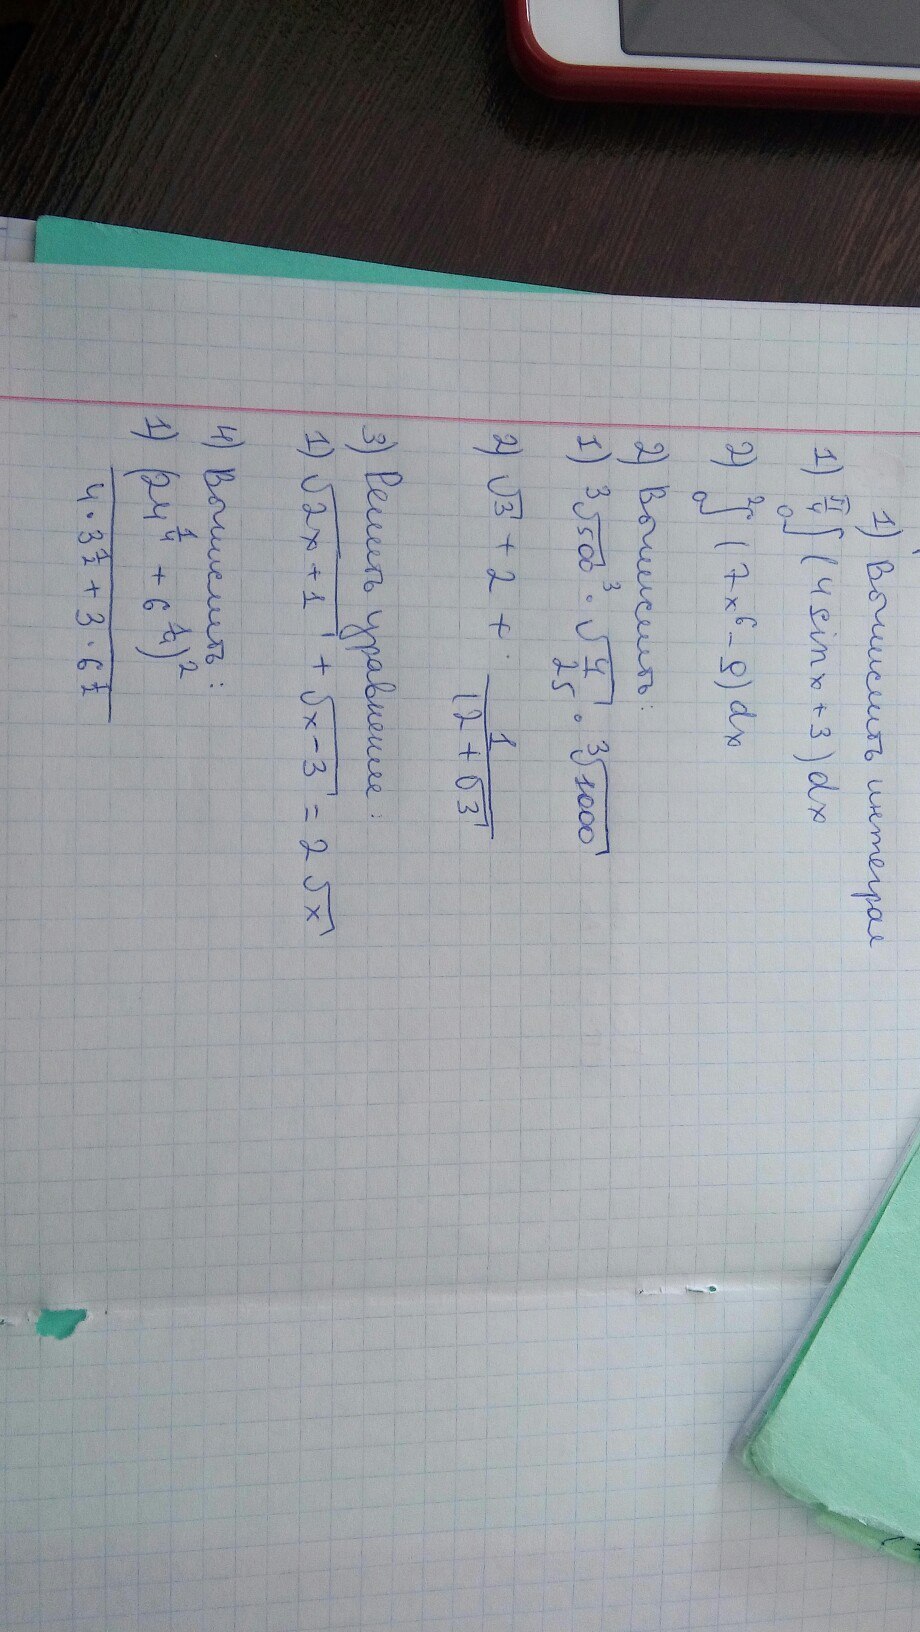 1) Вычислить интеграл
1) π/4 ∫ 0 (4 sin x + 3) dx
2) 2 ∫ 0 (7x⁶ - 9) dx
2) Вычислить:
1) ³√500 · ³√4/25 · ³√1000
2) √3 + 2 + 1/(2 + √3
3) Решить уравнение:
1) √2x+1 + √x-3 = 2√x
4) Вычислить:
1) (24^1/4 + 6^1/4)²
4·3^1/2 + 3·6^1/2